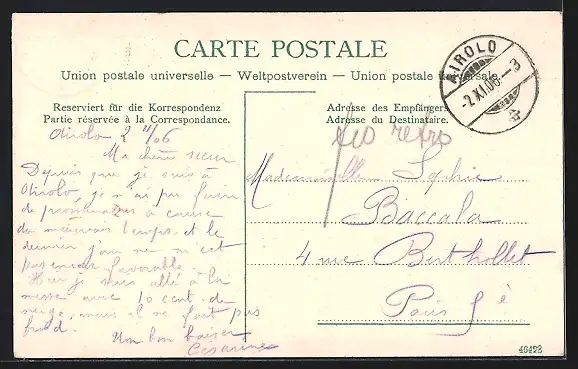 CARTE POSTALE
Union postale universelle — Weltpostverein — Union postale universale
Reserviert für die Korrespondenz
Partie réservée à la Correspondance.
Adresse des Empfängers
Adresse du Destinataire.
AIROLO
-2.XI.06.-3
Airolo 2 11/06
Ma chère sœur
Depuis que je suis à
Airolo je n'ai pu faire
de promenades à cause
du mauvais temps et le
dernier jour ne m'est
pas encore favorable.
Hier je suis allé à la
messe avec 10 cent. de
neige, mais il ne fait pas
froid.
Un bon baiser,
Césarine
retro
Mademoiselle Sophie
Baccala
4 rue Berthollet
Paris 5è
46492